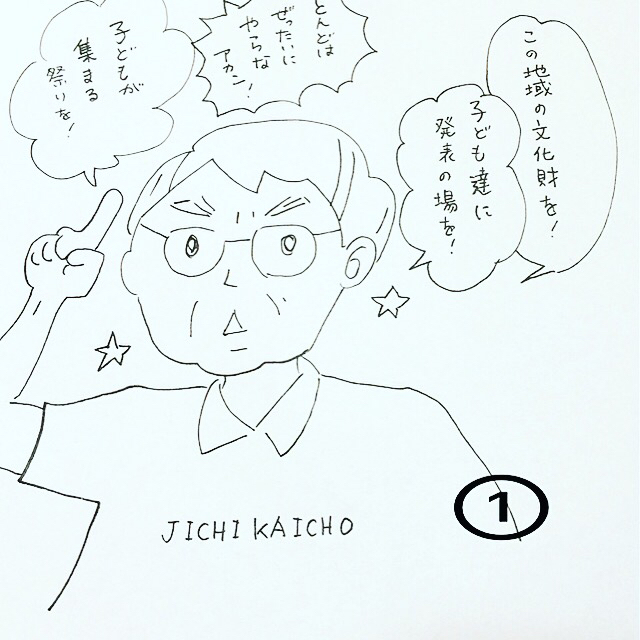 この地域の文化財を!
子ども達に
発表の場を!
とんどは
ぜったいに
やらな
アカン!
子どもが
集まる
祭りを!
JICHI KAICHO
1